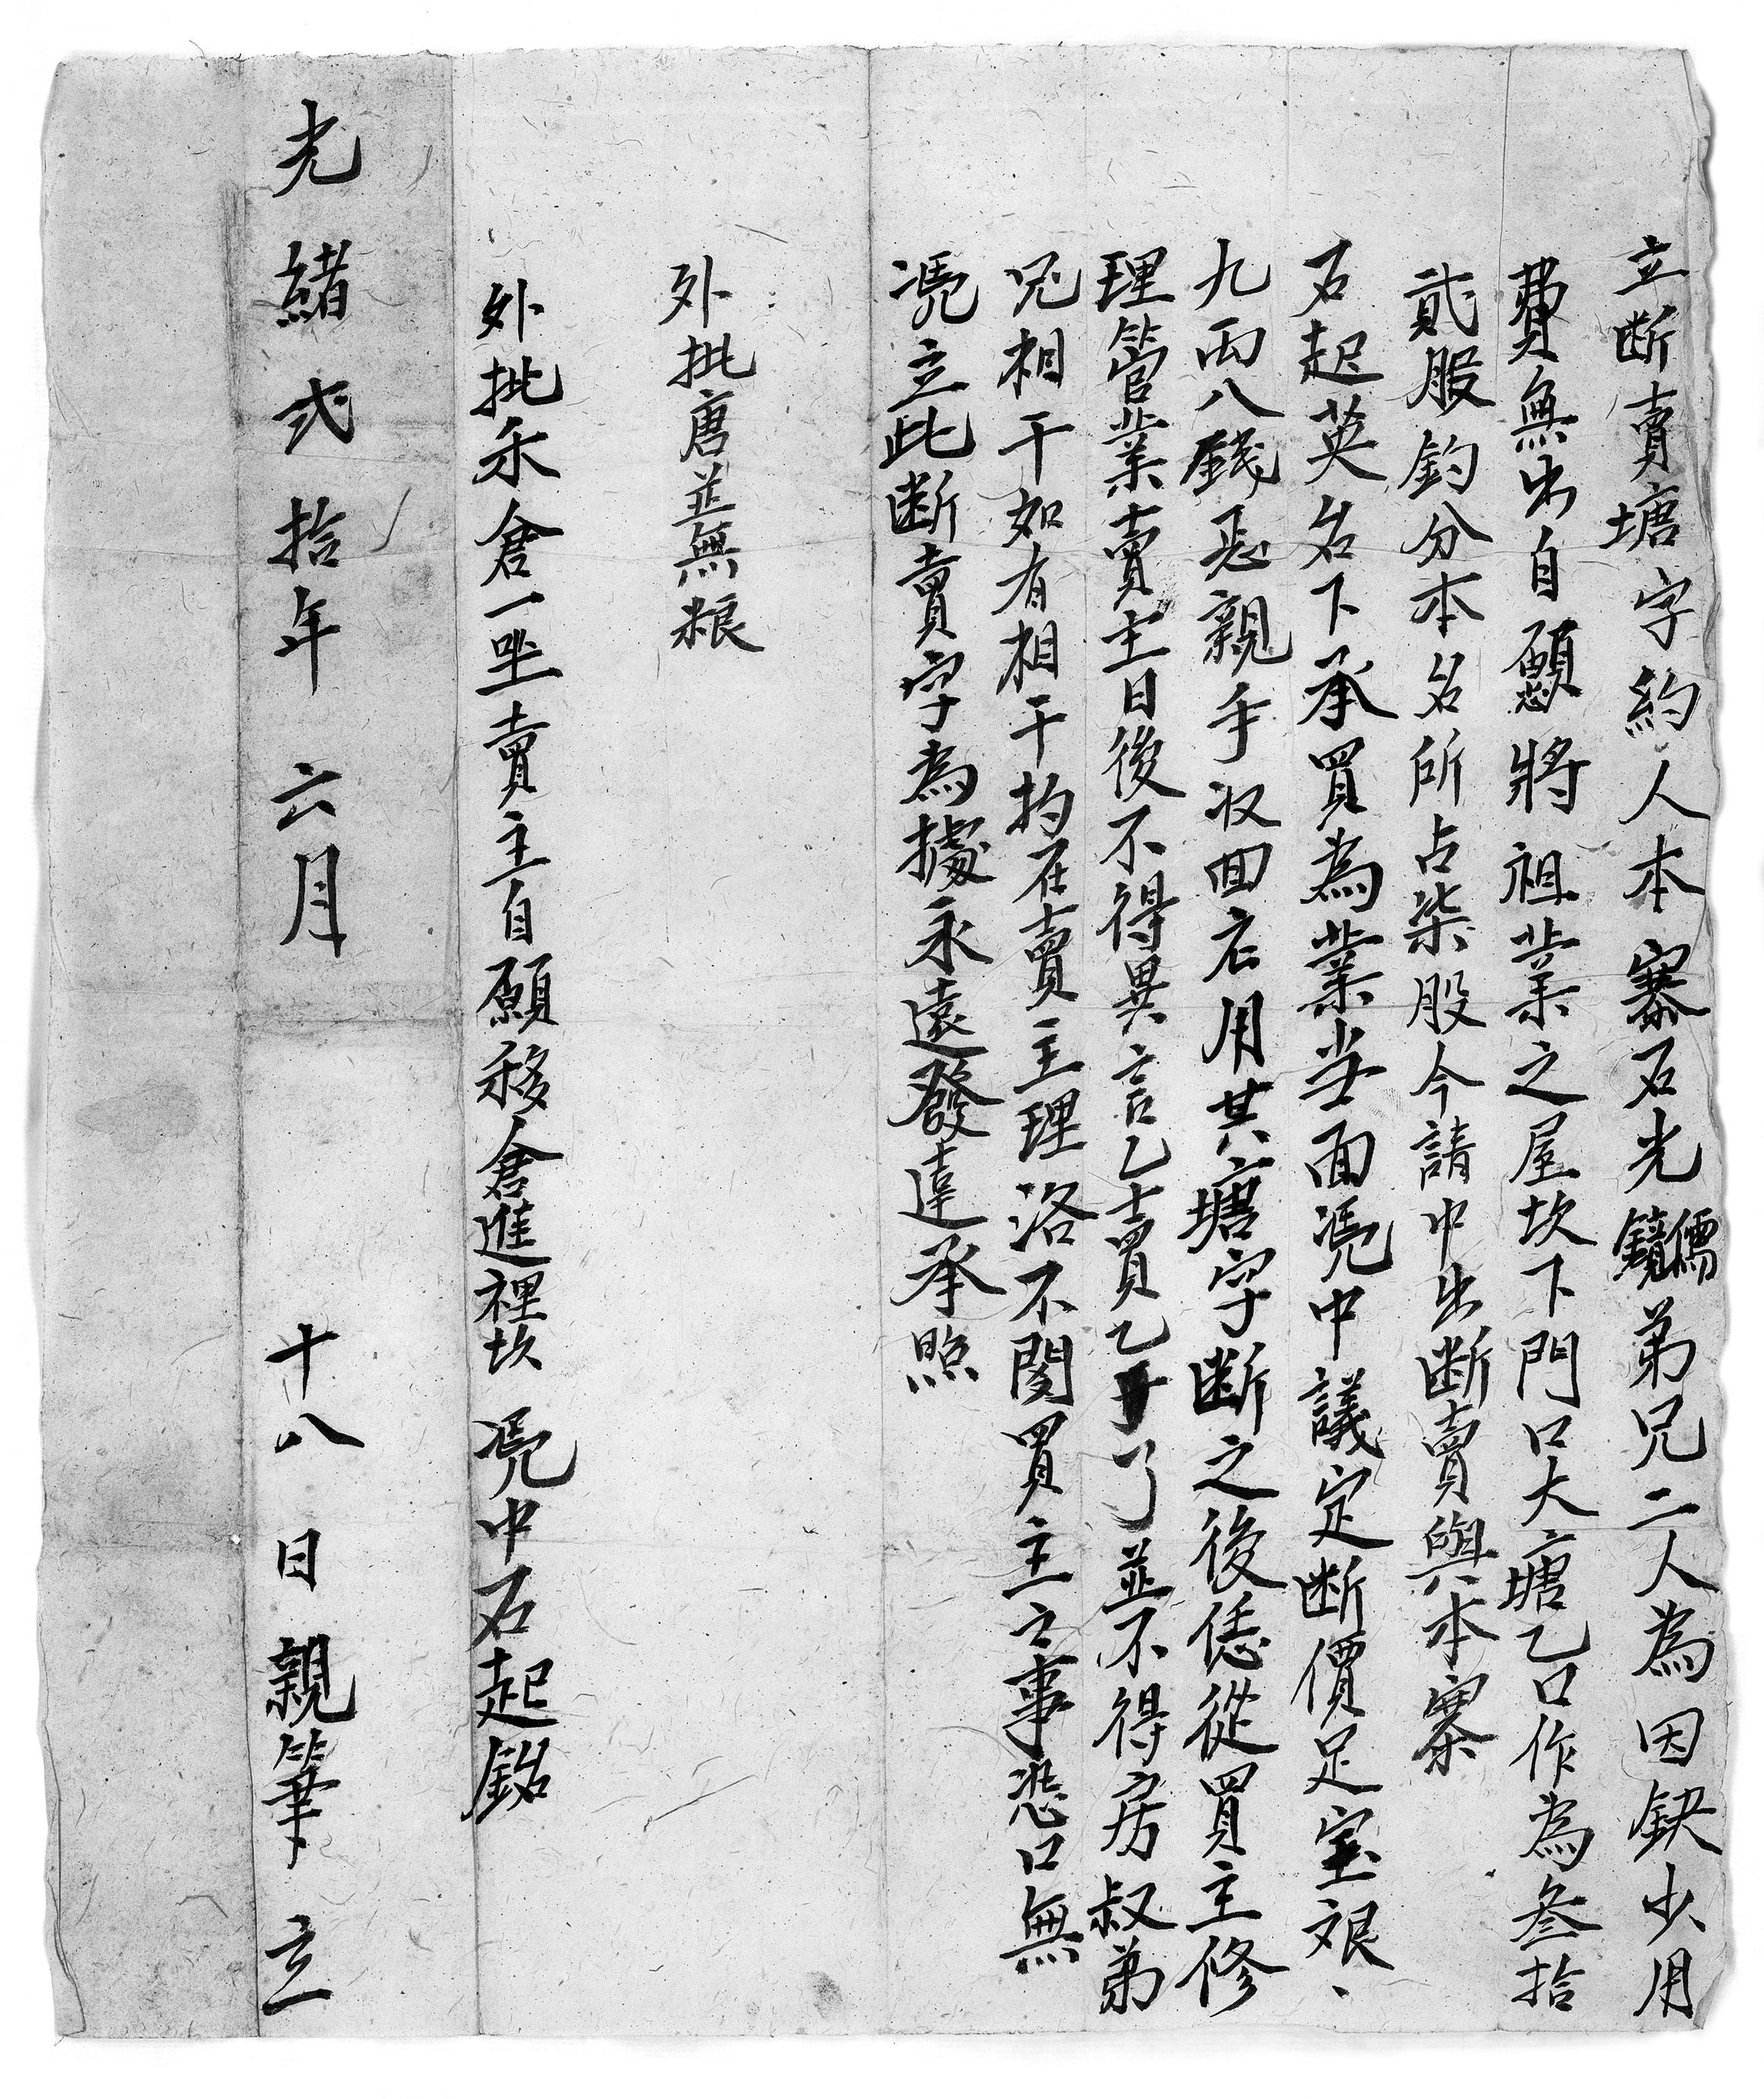 立断賣塘字約人本寨石光儒鏡弟兄二人為因缺少用
費無出自願將祖業之屋坎下門口大塘乙口作為叁拾
貳股鈞分本名所占柒股今請中出断賣與本寨
石起英名下承買為業当面凴中議定断價足宝艰、
九両八錢㤙親手收囬応用其塘字断之後恁從買主修
理管業賣主日後不得異言乙賣乙了了並不得房叔弟
兄相干如有相干抣在賣主理洛不関買主之事恐口無
凴立此断賣字為據永遠發達承照
外批唐並無粮
外批禾倉一坐賣主自願移倉進裡坎 凴中石起銘
光緒弍拾年六月 十八日親筆立